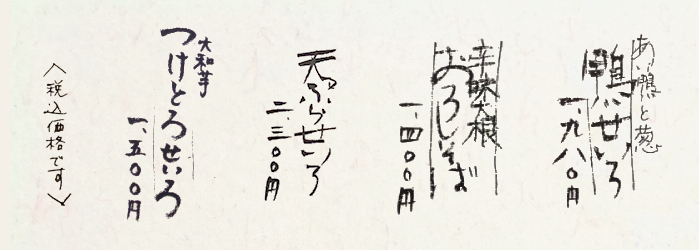 あい鴨と葱
鴨せいろ
一、九八〇円
辛味大根
おろしそば
一、四〇〇円
天ぷらせいろ
二、三〇〇円
大和芋
つけとろせいろ
一、五〇〇円
〈税込価格です〉